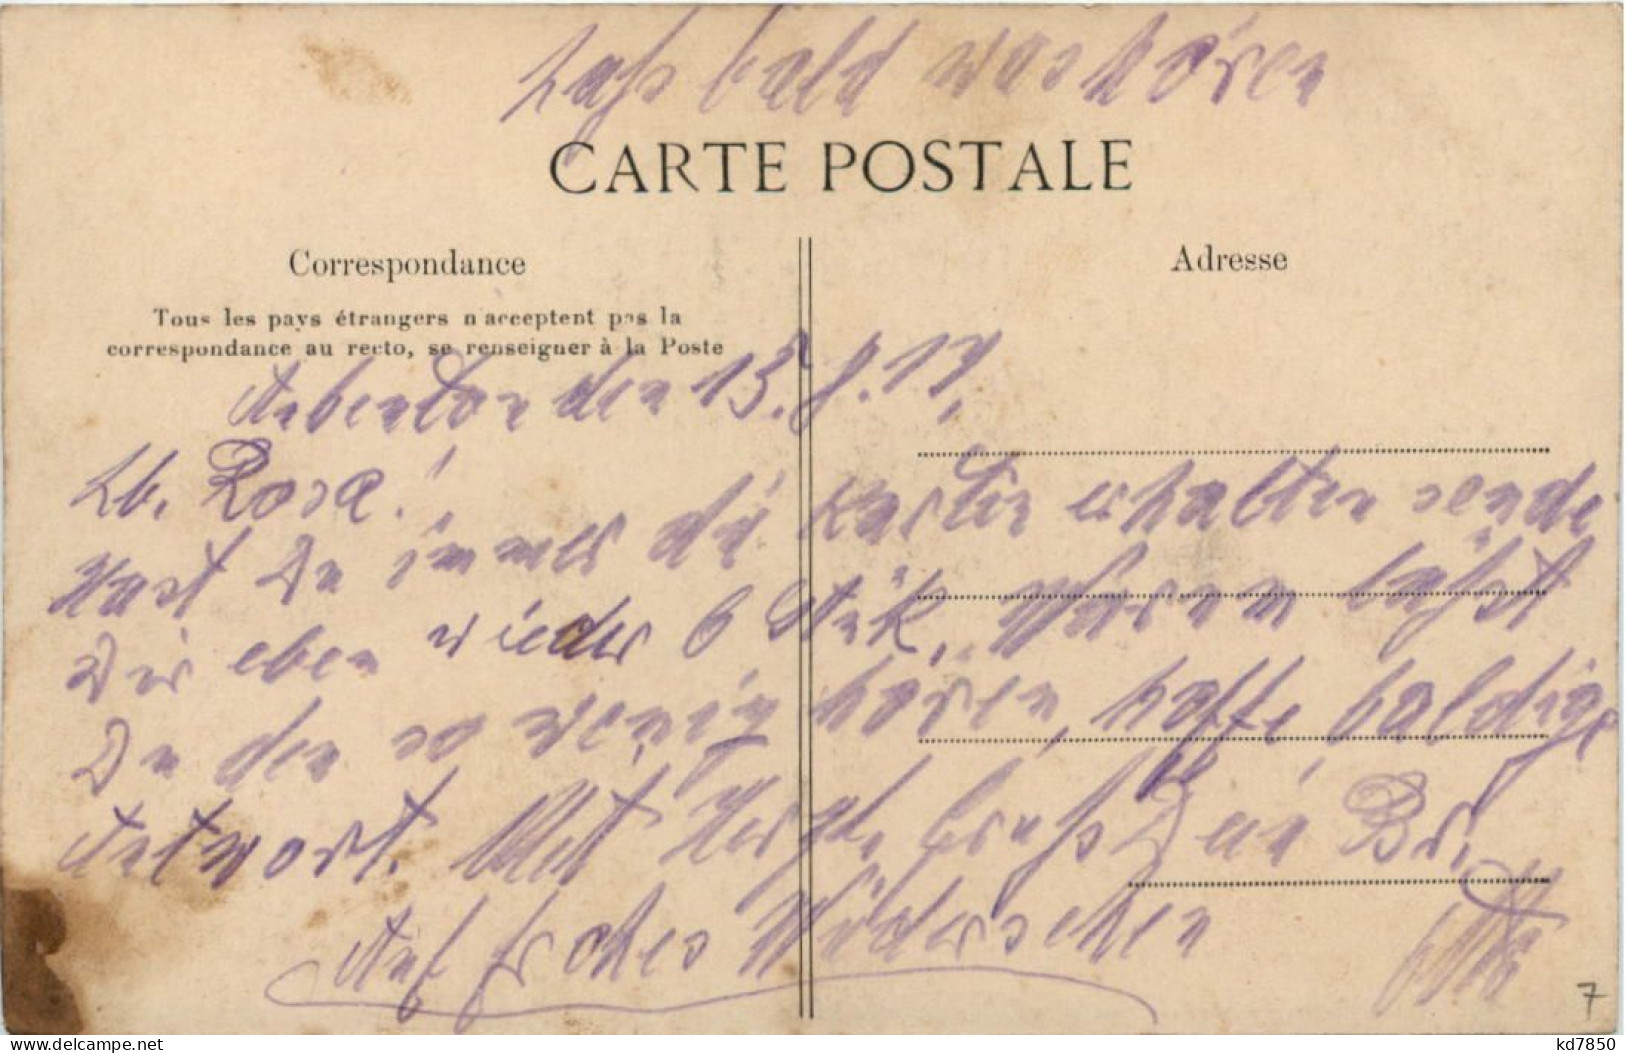 Laß bald was hören
CARTE POSTALE
Correspondance
Adresse
Tous les pays étrangers n'acceptent pas la
correspondance au recto, se renseigner à la Poste
Aubenton den 15.8.17.
Lb. Rosa!
Hast Du immer die Karten erhalten sende
Dir eben wieder 6 Stük, Warum läßst
Du den so wenig hören, hoffe baldige
Antwort. Mit Herzl. Gruß Dein Br.
Auf frohes Widersehen
7
kd7850